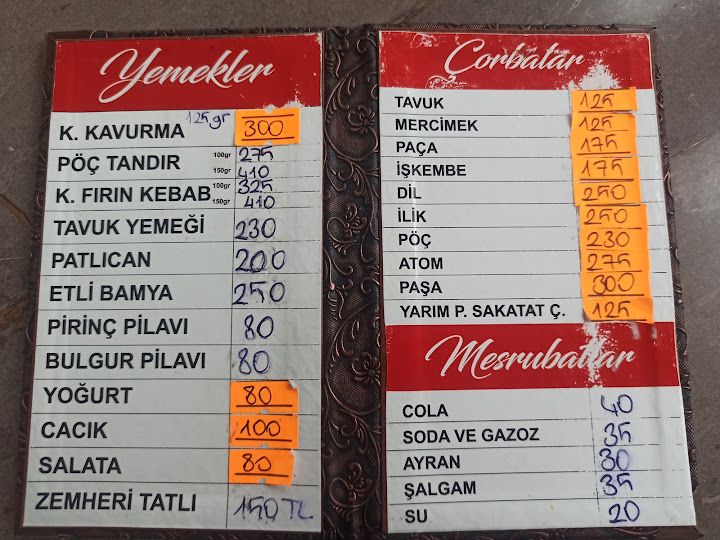 Yemekler
K. KAVURMA 125gr 300
PÖÇ TANDIR 100gr 275
150gr 410
K. FIRIN KEBAB 100gr 325
150gr 410
TAVUK YEMEĞİ 230
PATLICAN 200
ETLİ BAMYA 250
PİRİNÇ PİLAVI 80
BULGUR PİLAVI 80
YOĞURT 80
CACIK 100
SALATA 80
ZEMHERİ TATLI 150 TL
Çorbalar
TAVUK 125
MERCİMEK 125
PAÇA 175
İŞKEMBE 175
DİL 250
İLİK 250
PÖÇ 230
ATOM 275
PAŞA 300
YARIM P. SAKATAT Ç. 125
Mesrubatlar
COLA 40
SODA VE GAZOZ 35
AYRAN 30
ŞALGAM 35
SU 20